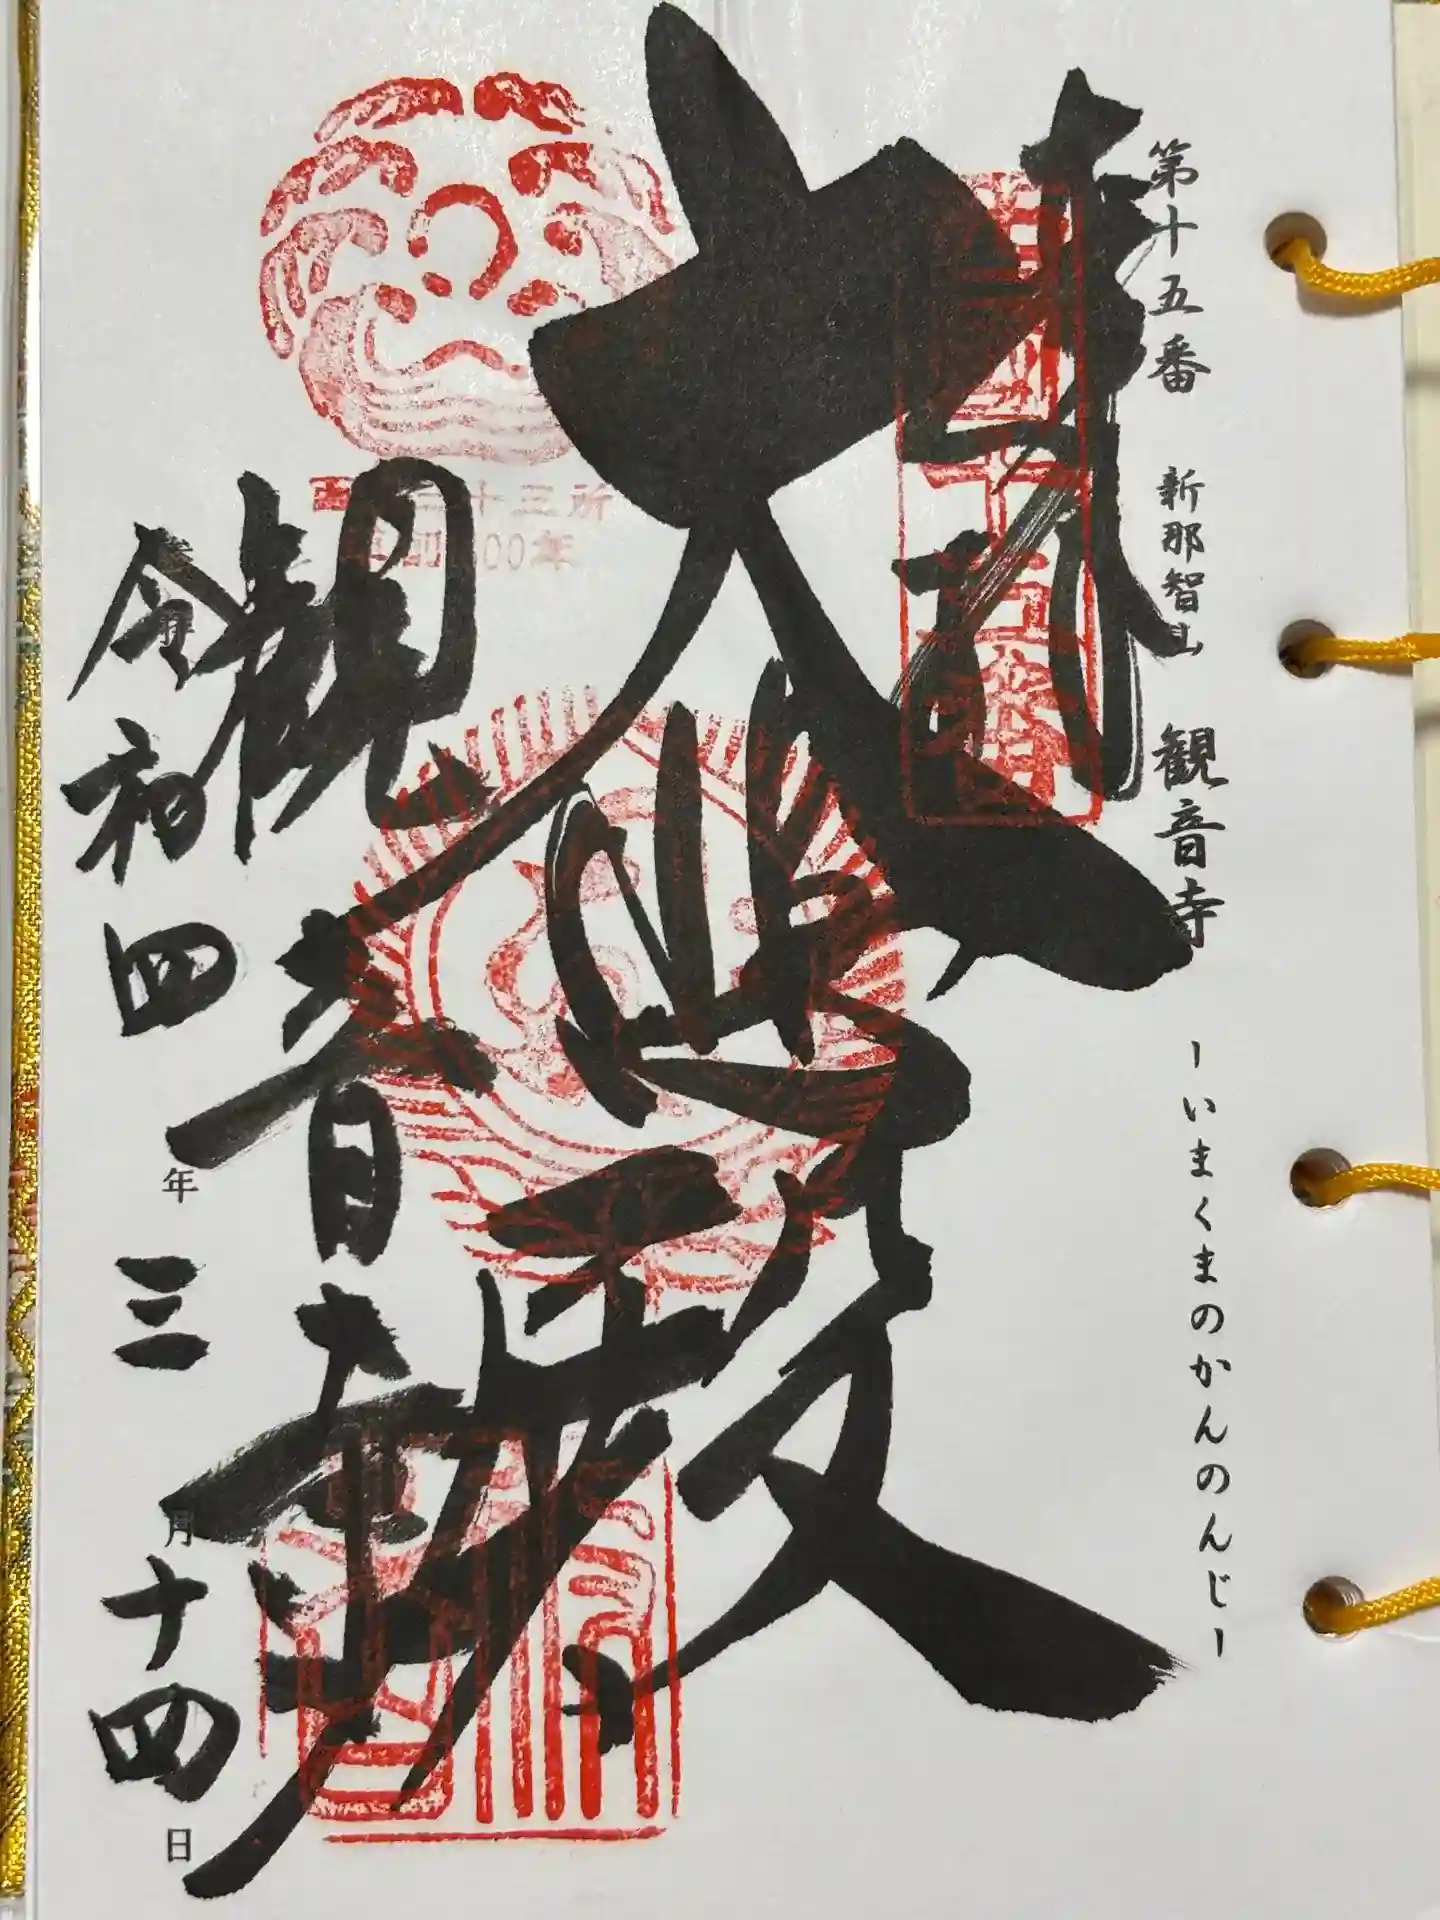 第十五番 新那智山 観音寺 -いまくまのかんのんじ-
奉拝
西国十五番
大悲殿
西国三十三所
草創1300年
観音寺
参拝
令和四年三月十四日